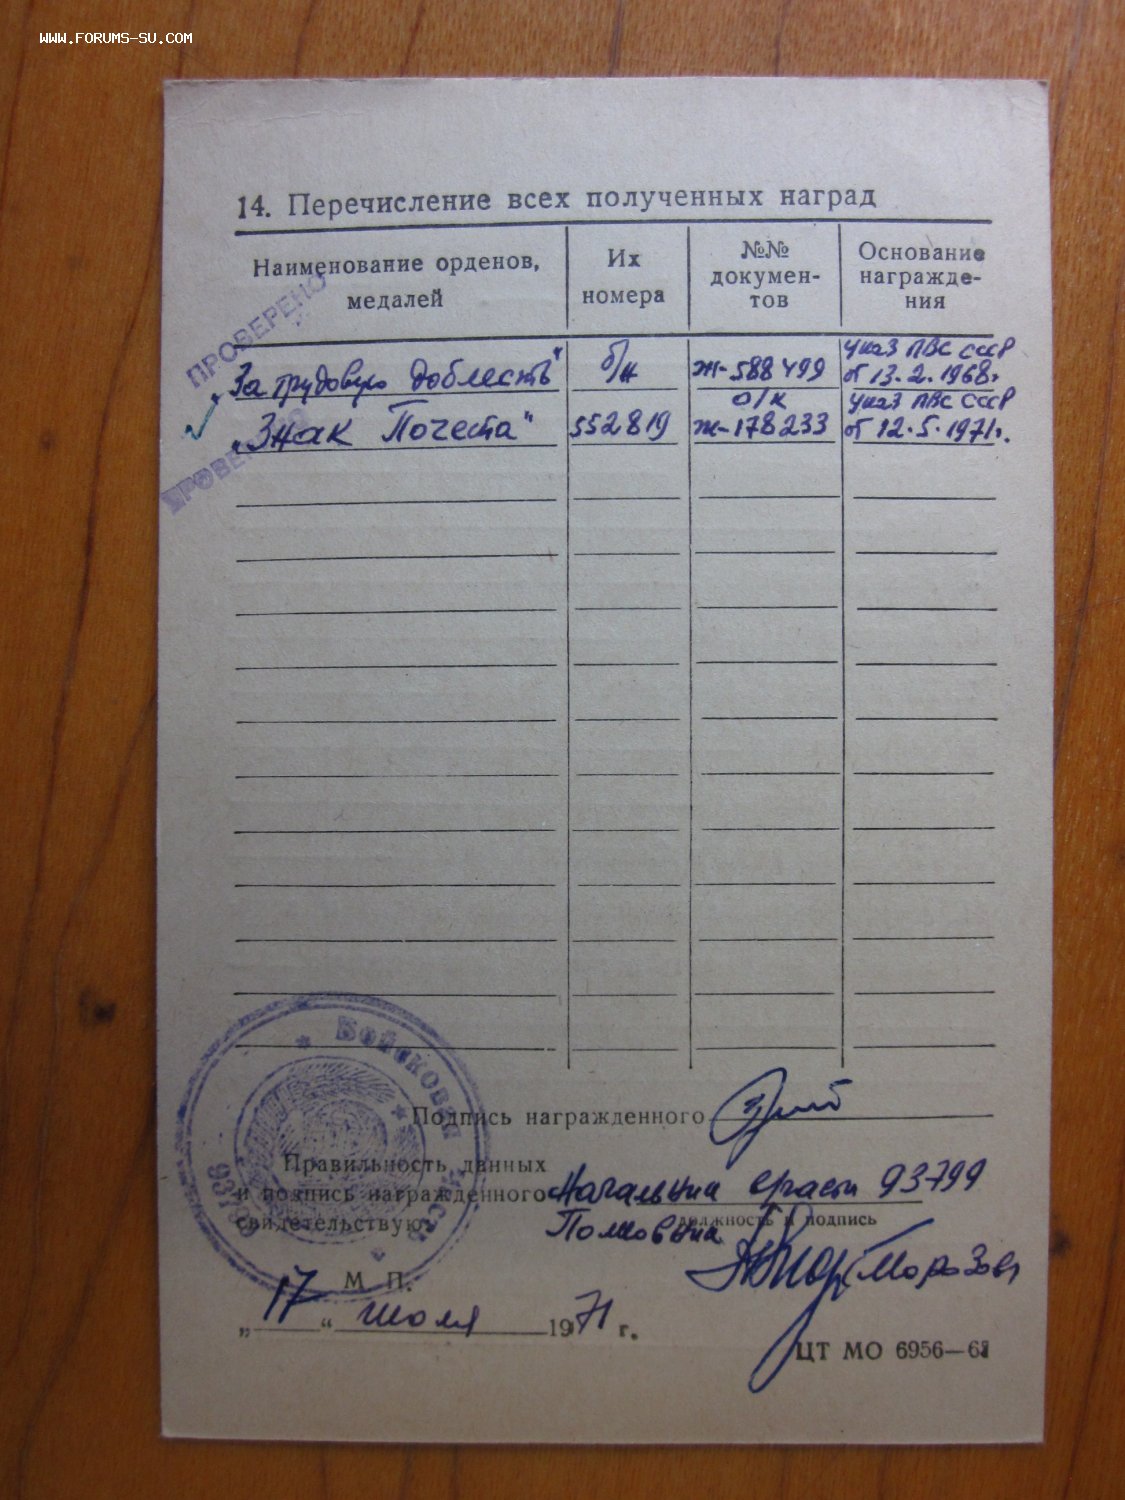 WWW.FORUMS-SU.COM
14. Перечисление всех полученных наград
Наименование орденов, медалей
Их номера
№№ докумен-
тов
Основание
награжде-
ния
ПРОВЕРЕНО
„За трудовую доблесть" б/н Ж-588499 Указ ПВС СССР
от 13.2.1968г.
„Знак Почета" 552819 о/к Ж-178233 Указ ПВС СССР
от 12.5.1971г.
ПРОВЕРЕНО
Войсковая часть
Подпись награжденного
Правильность данных
и подпись награжденного
свидетельствую
Начальник в/части 93799
должность и подпись
Полковник
Морозов
М. П.
„17" июля 1971 г.
ЦТ МО 6956—